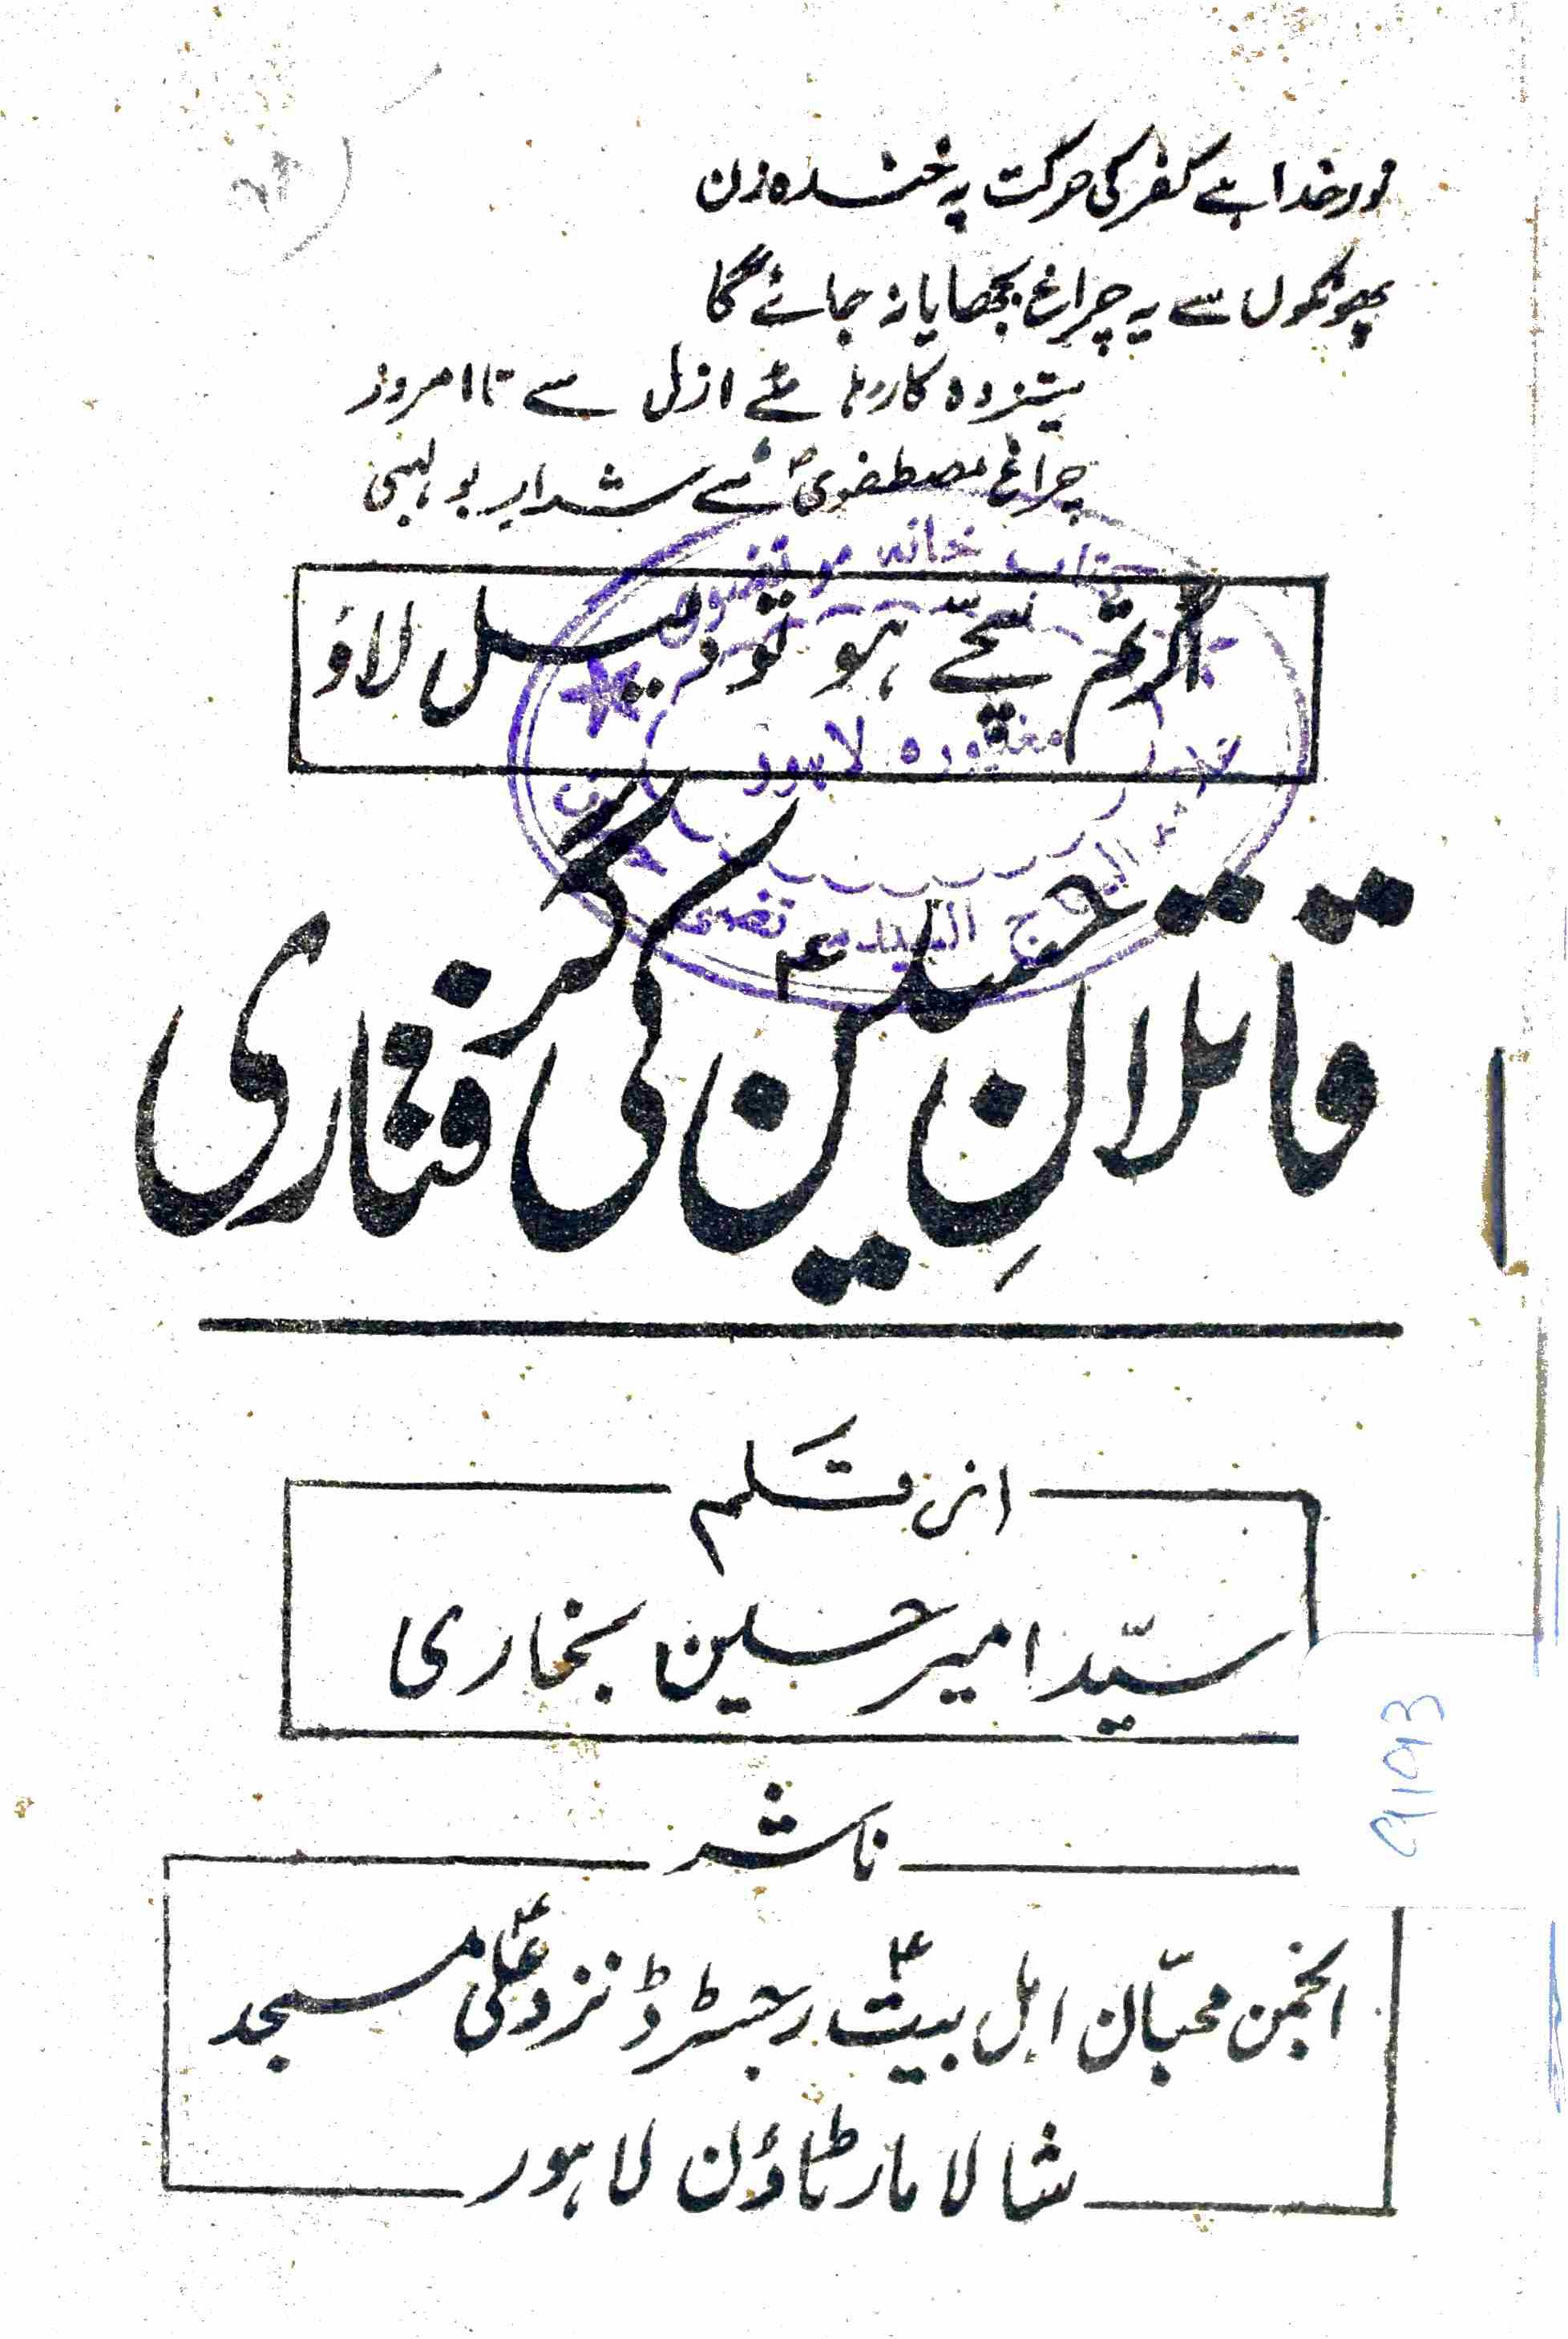 نور خدا ہے کفر کی حرکت پہ خندہ زن
پھونکوں سے یہ چراغ بجھایا نہ جائے گا
ستیزہ کار رہا ہے ازل سے تا امروز
چراغ مصطفویؐ سے شرارِ بولہبی
اگر تم سچّے ہو تو دلیل لاؤ
قاتلانِ حسینؑ کی گرفتاری
از قلم
سیّد امیر حسین بخاری
ناشر
انجمن محبّان اہل بیتؑ رجسٹرڈ نزد علیؑ مسجد
شالامار ٹاؤن لاہور
خانہ
لاہور
9193